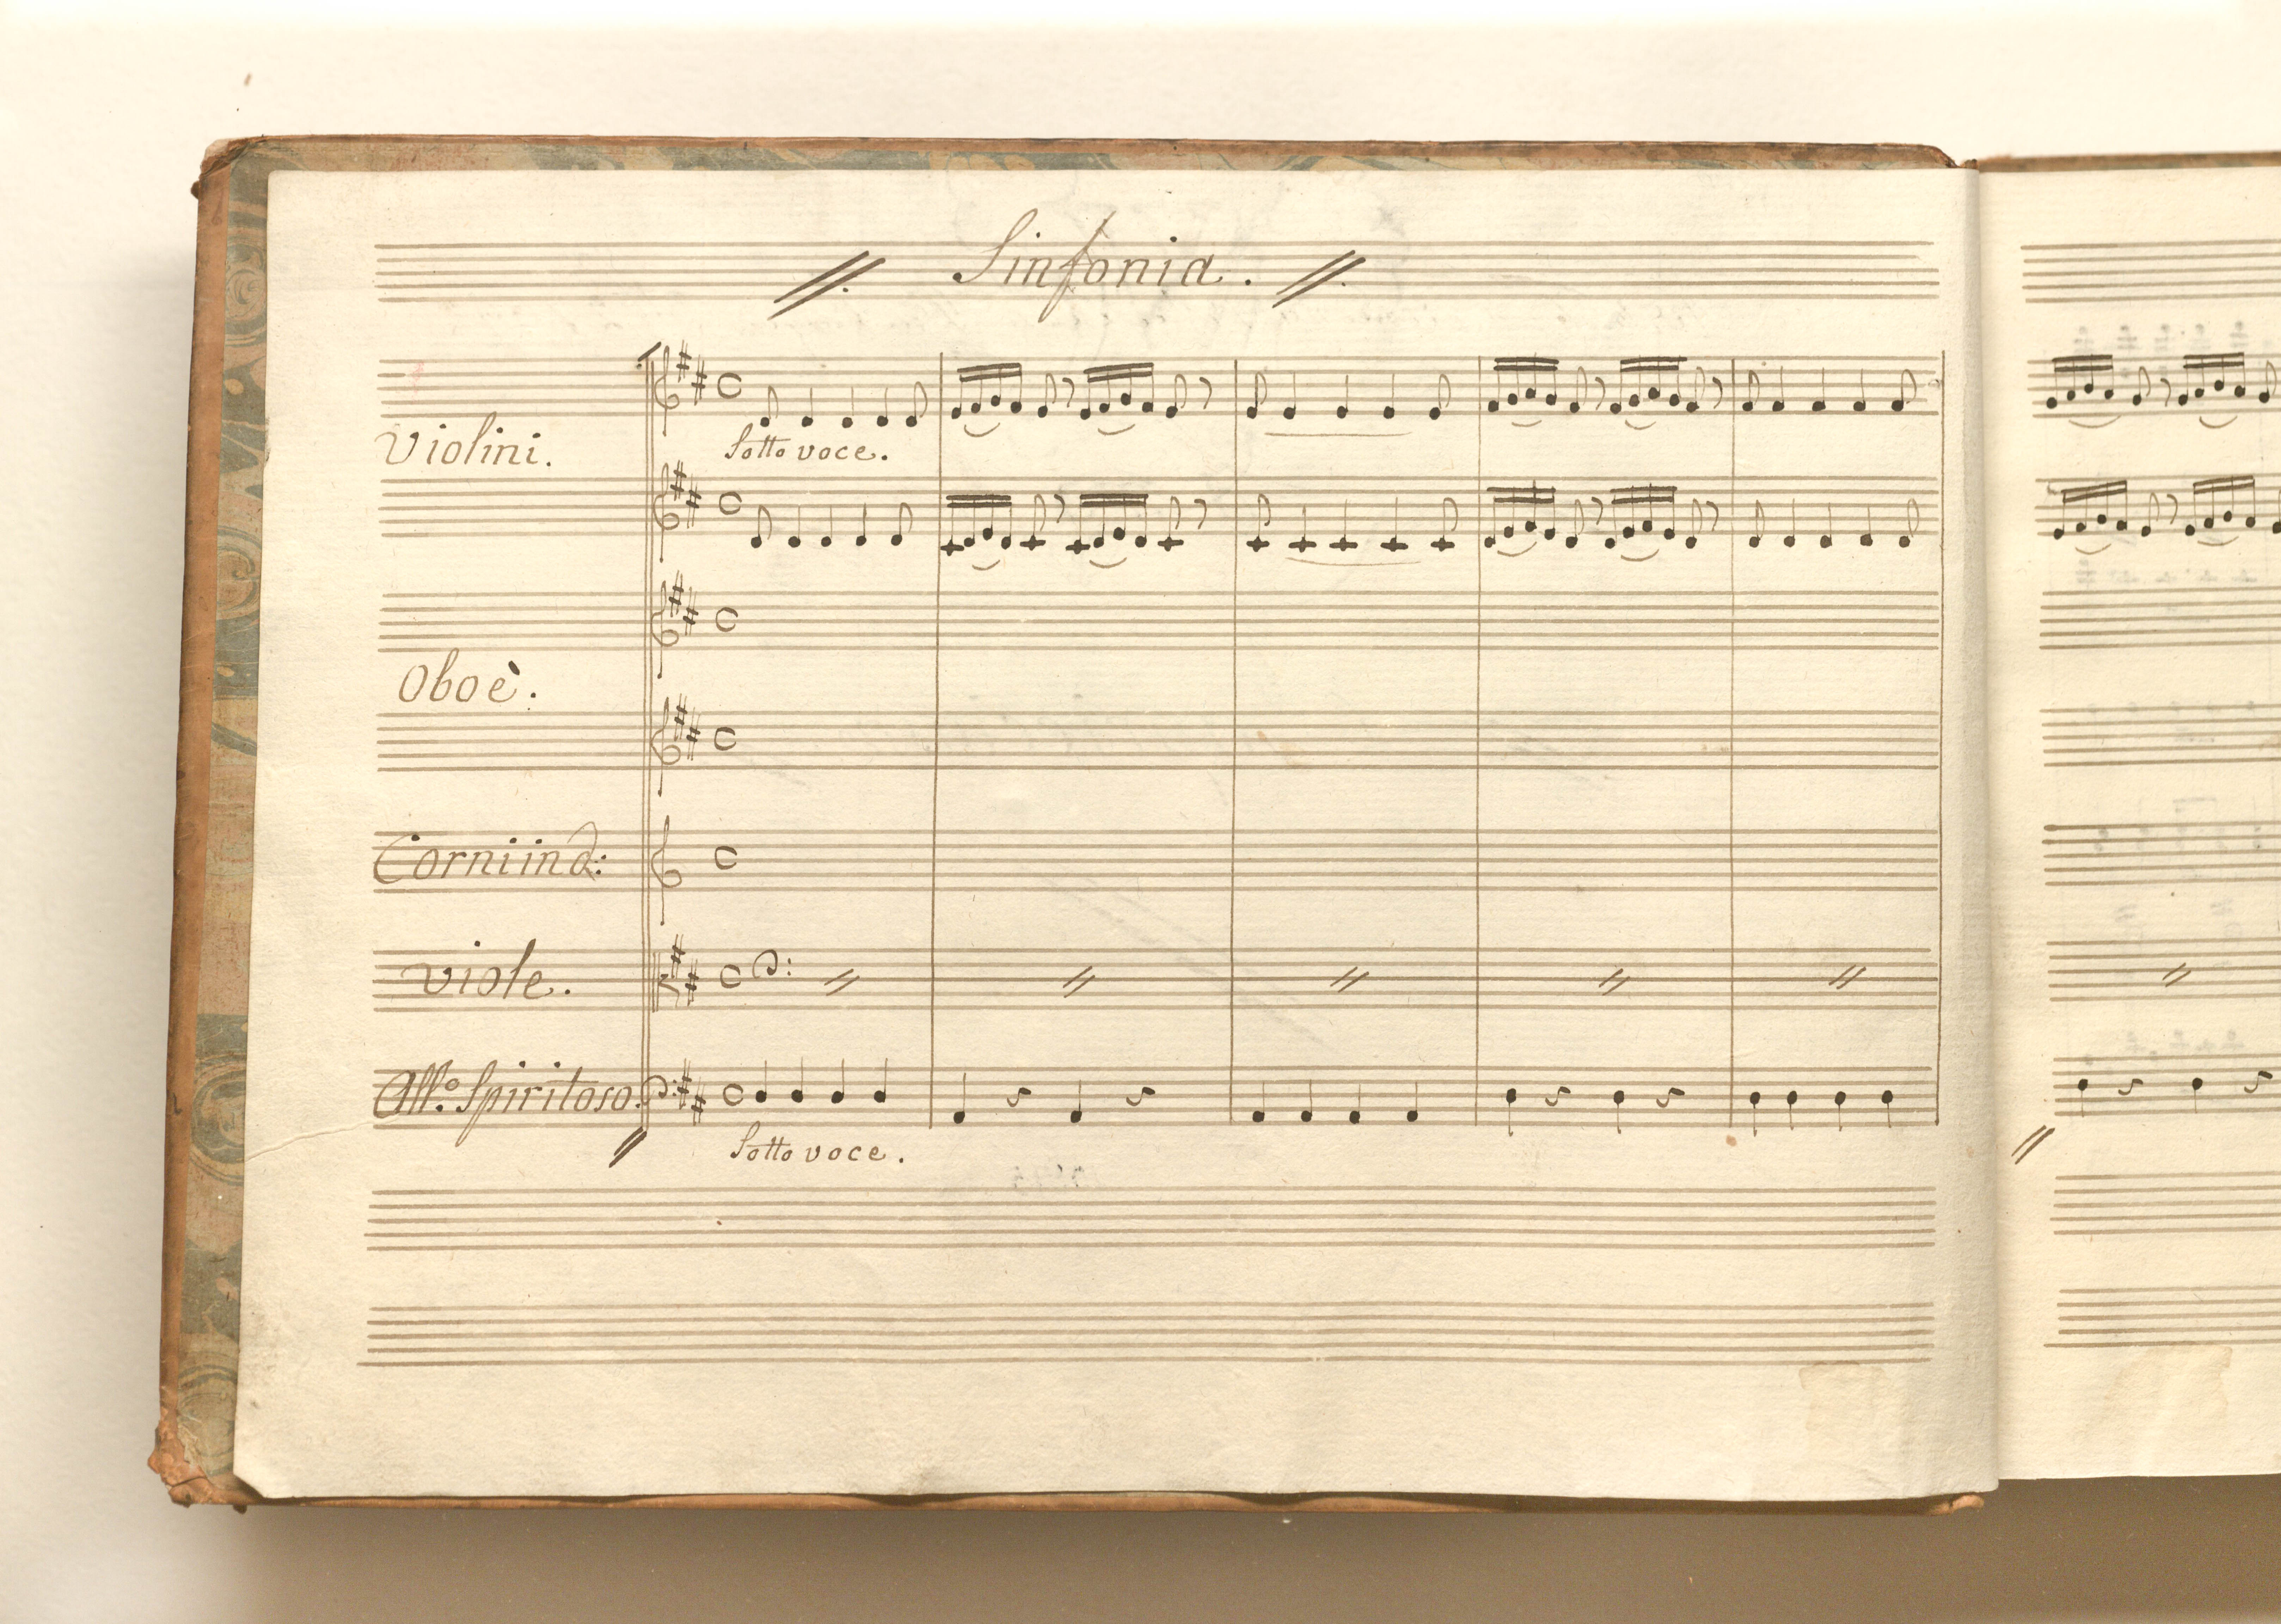 Sinfonia.
Violini.
Sotto voce.
Oboè.
Corni in D:
Viole.
All.º Spiritoso.
Sotto voce.